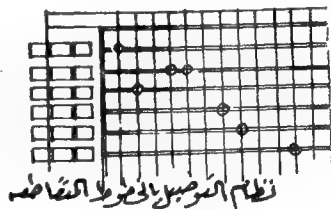 نظام التوصيل بالخطوط المتقاطعه